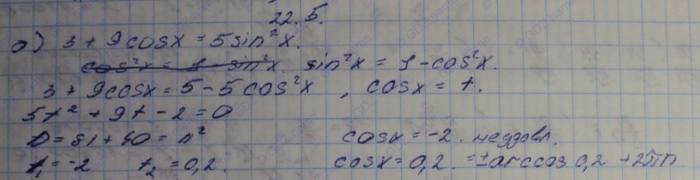 22.5.
а) 3 + 9cosx = 5sin²x.
sin²x = 1-cos²x.
3 + 9cosx = 5 - 5cos²x, cosx = t.
5t² + 9t - 2 = 0
D = 81 + 40 = 11² cosx = -2. не удовл.
t₁ = -2 t₂ = 0,2. cosx = 0,2. = ± arccos 0,2 + 2πn